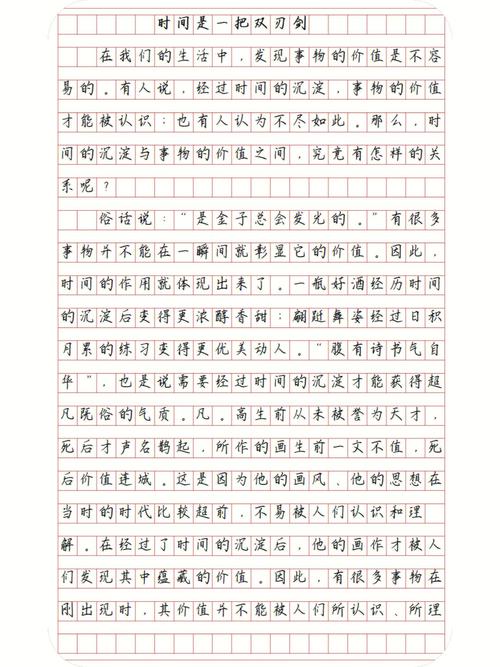 时间是一把双刃剑
在我们的生活中，发现事物的价值是不容
易的。有人说，经过时间的沉淀，事物的价值
才能被认识；也有人认为不尽如此。那么，时
间的沉淀与事物的价值之间，究竟有怎样的关
系呢？
俗话说：“是金子总会发光的。”有很多
事物并不能在一瞬间就彰显它的价值。因此，
时间的作用就体现出来了。一瓶好酒经历时间
的沉淀后变得更浓醇香甜；翩跹舞姿经过日积
月累的练习变得更优美动人。“腹有诗书气自
华”，也是说需要经过时间的沉淀才能获得超
凡脱俗的气质。凡。高生前从未被誉为天才，
死后才声名鹊起，所作的画生前一文不值，死
后价值连城。这是因为他的画风、他的思想在
当时的时代比较超前，不易被人们认识和理
解。在经过了时间的沉淀后，他的画作才被人
们发现其中蕴藏的价值。因此，有很多事物在
刚出现时，其价值并不能被人们所认识、所理